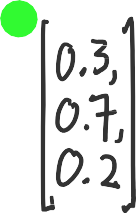 [0.3,
0.7,
0.2]